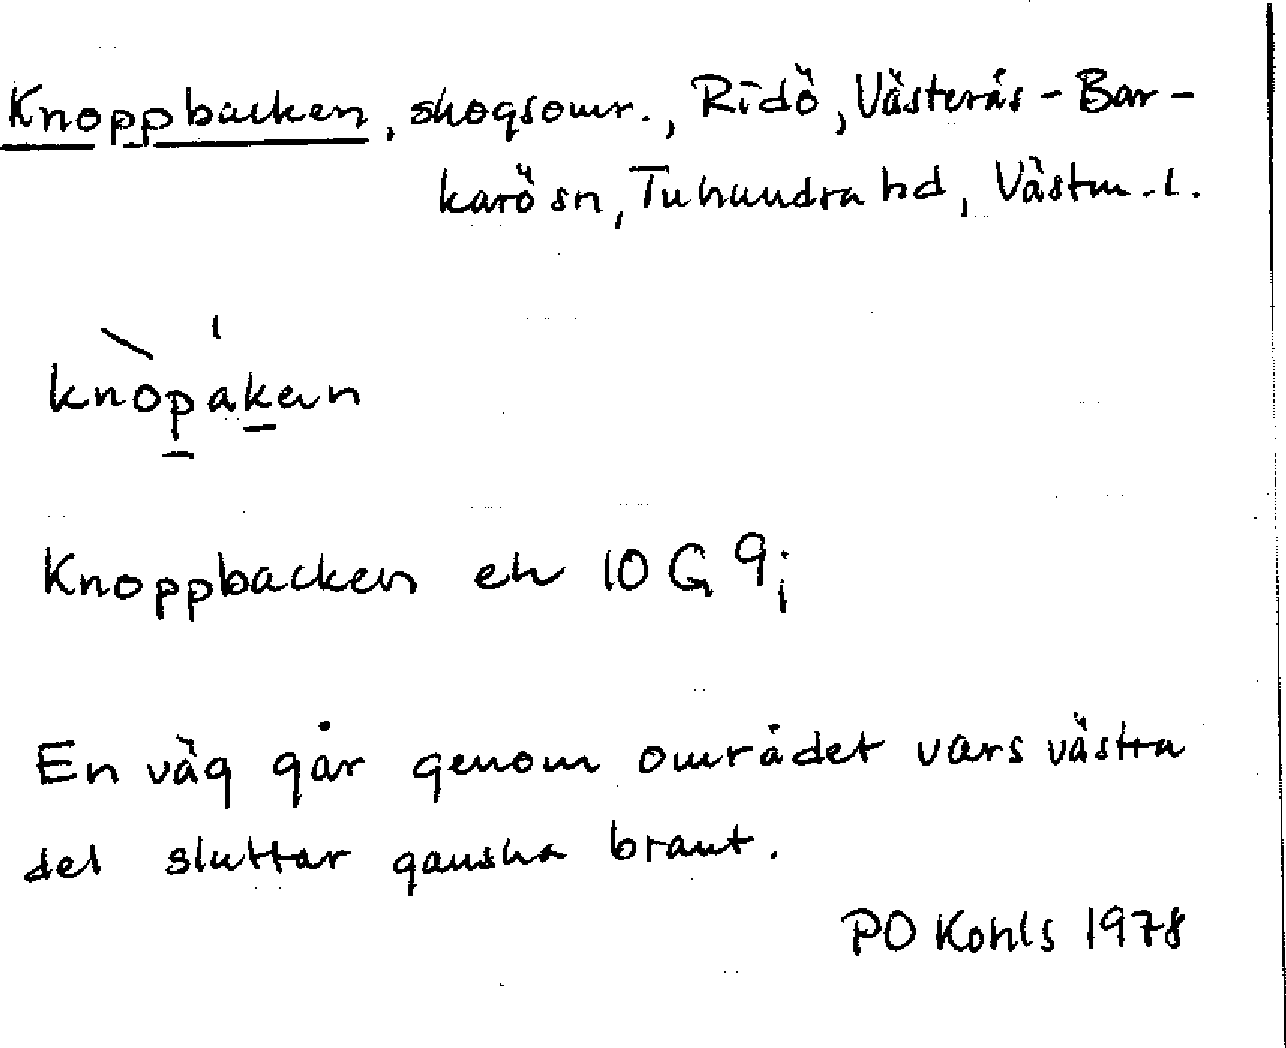 Knoppbacken, skogsomr., Ridö, Västerås-Bar-
karö sn, Tuhundra hd, Västm.l.
knòpákan
Knoppbacken ek 10 G 9i
En väg går genom området vars västra
del sluttar ganska brant.
PO Kohls 1978